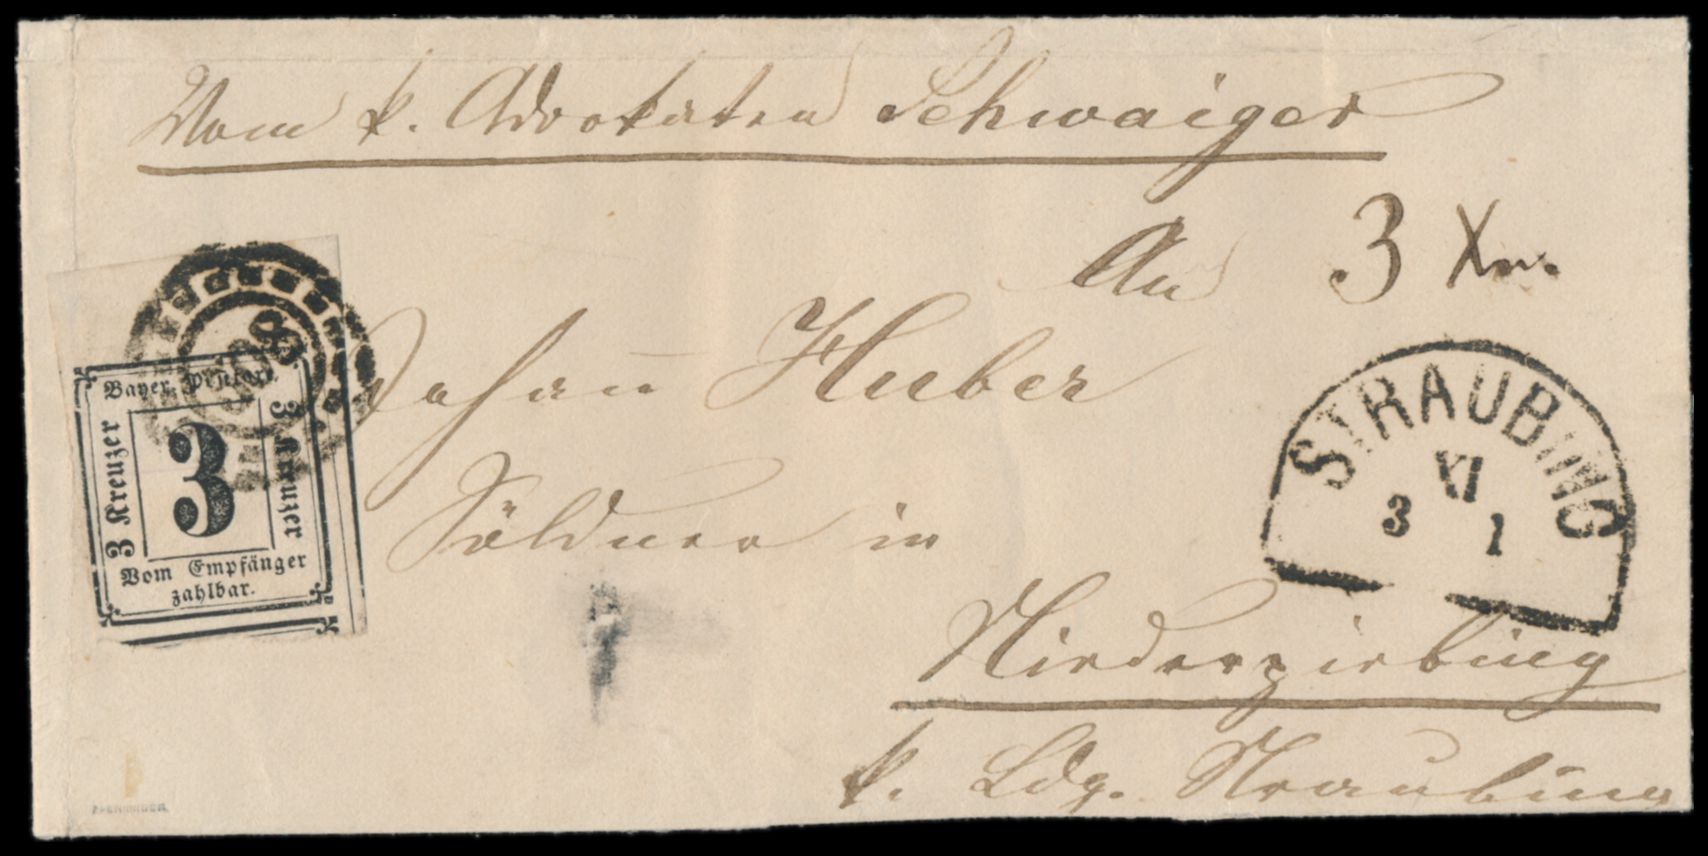 Vom k. Advokaten Schwaiger
An
3 Xr.
Johann Huber
Söldner in
Niederpiebing
k. Ldg. Straubing
Bayer. Posttaxe.
3 Kreuzer
3
3 Kreuzer
Vom Empfänger
zahlbar.
STRAUBING
XI
3 1
PFENNINGER